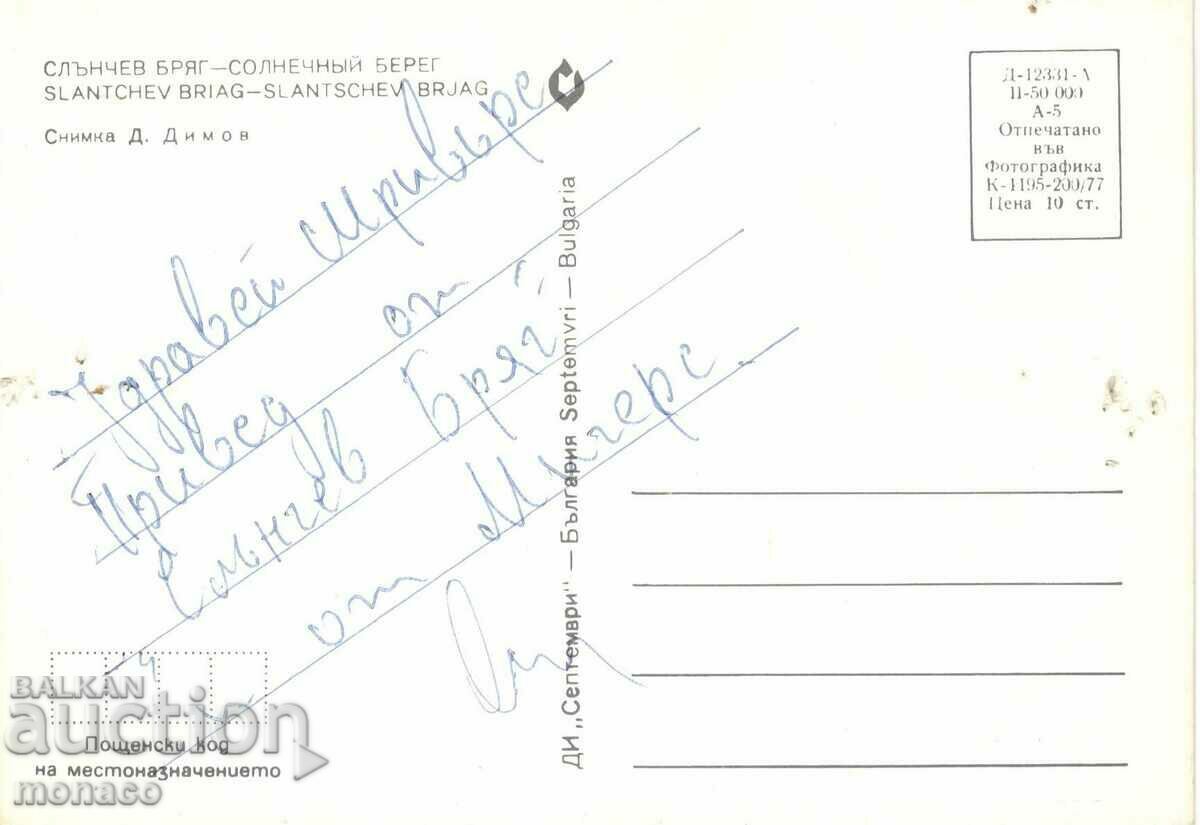 СЛЪНЧЕВ БРЯГ—СОЛНЕЧНЫЙ БЕРЕГ
SLANTCHEV BRIAG—SLANTSCHEV BRJAG
Снимка Д. Димов
Здравей
Привед от
Слънчев Бряг
от
ДИ „Септември" — България Septemvri — Bulgaria
Д-12331-А
П-50 000
А-5
Отпечатано
във
Фотографика
К-1195-200/77
Цена 10 ст.
Пощенски код
на местоназначението
BALKAN
auction
monaco